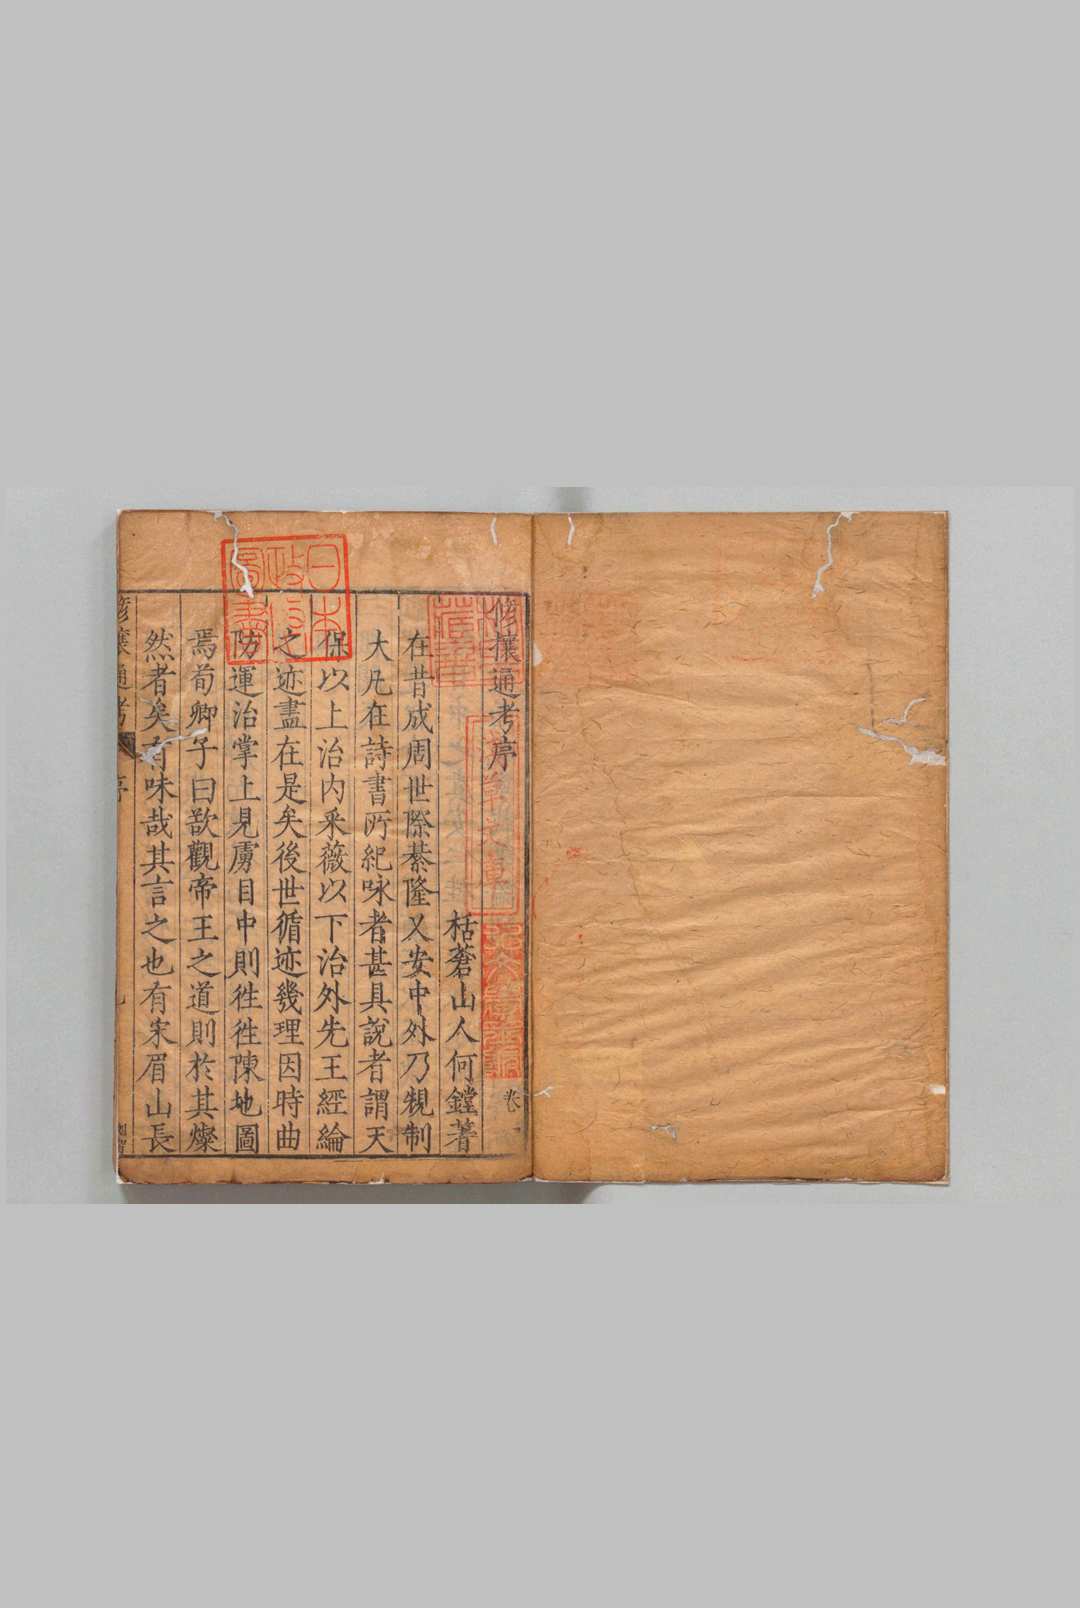 脩攘通考序
枯蒼山人何鏜著
在昔成周世際綦隆又安中外乃規制
大凡在詩書所紀咏者甚具說者謂天
保以上治内采薇以下治外先王經綸
之迹盡在是矣後世循迹幾理因時曲
防運治掌上見虜目中則徃徃陳地圖
焉荀卿子曰欲觀帝王之道則於其燦
然者矣有味哉其言之也有宋眉山長
脩攘通考
序
日本
政府
圖書